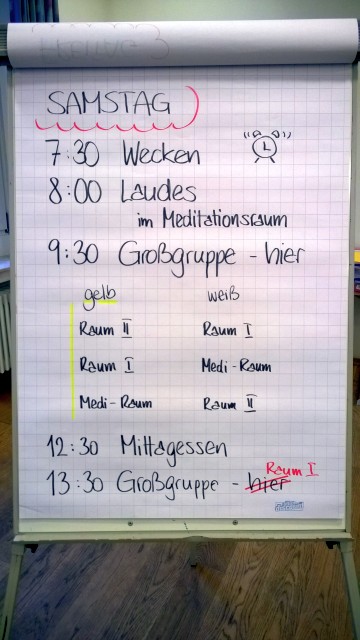 SAMSTAG
7:30 Wecken
8:00 Laudes
im Meditationsraum
9:30 Großgruppe - hier
gelb weiß
Raum II Raum I
Raum I Medi-Raum
Medi-Raum Raum II
12:30 Mittagessen
Raum I
13:30 Großgruppe - hier